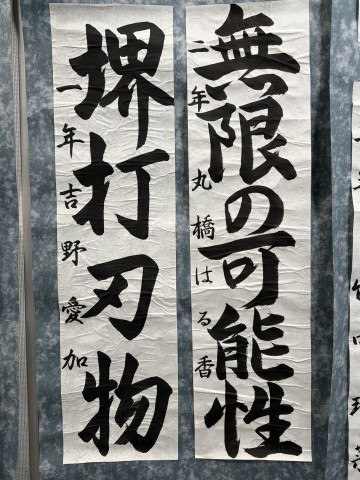 無限の可能性
二年 丸橋はる香
堺打刃物
一年 吉野愛加